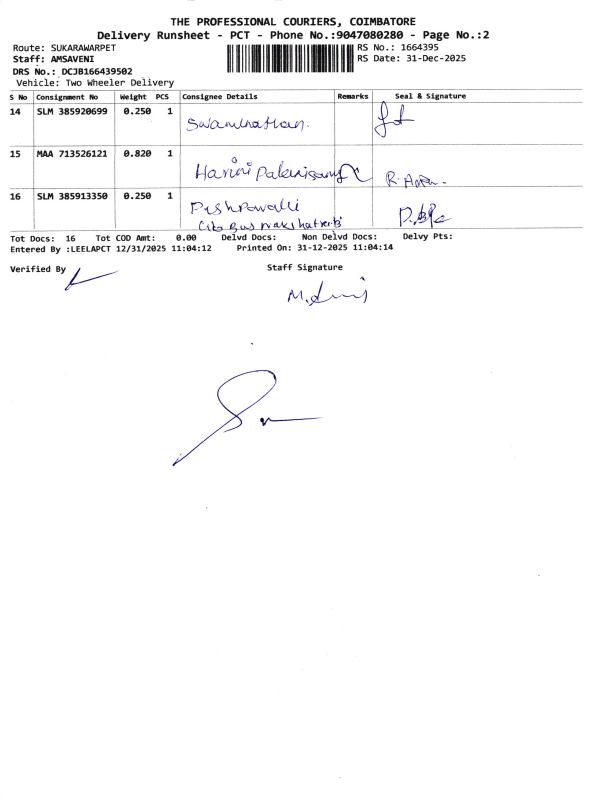 THE PROFESSIONAL COURIERS, COIMBATORE
Delivery Runsheet - PCT - Phone No.:9047080280 - Page No.:2
Route: SUKARAWARPET RS No.: 1664395
Staff: AMSAVENI RS Date: 31-Dec-2025
DRS No.: DCJB166439502
Vehicle: Two Wheeler Delivery
S No Consignment No Weight PCS Consignee Details Remarks Seal & Signature
14 SLM 385920699 0.250 1
Swaminathan.
15 MAA 713526121 0.820 1
Harini
16 SLM 385913350 0.250 1
Tot Docs: 16 Tot COD Amt: 0.00 Delvd Docs: Non Delvd Docs: Delvy Pts:
Entered By :LEELAPCT 12/31/2025 11:04:12 Printed On: 31-12-2025 11:04:14
Verified By Staff Signature